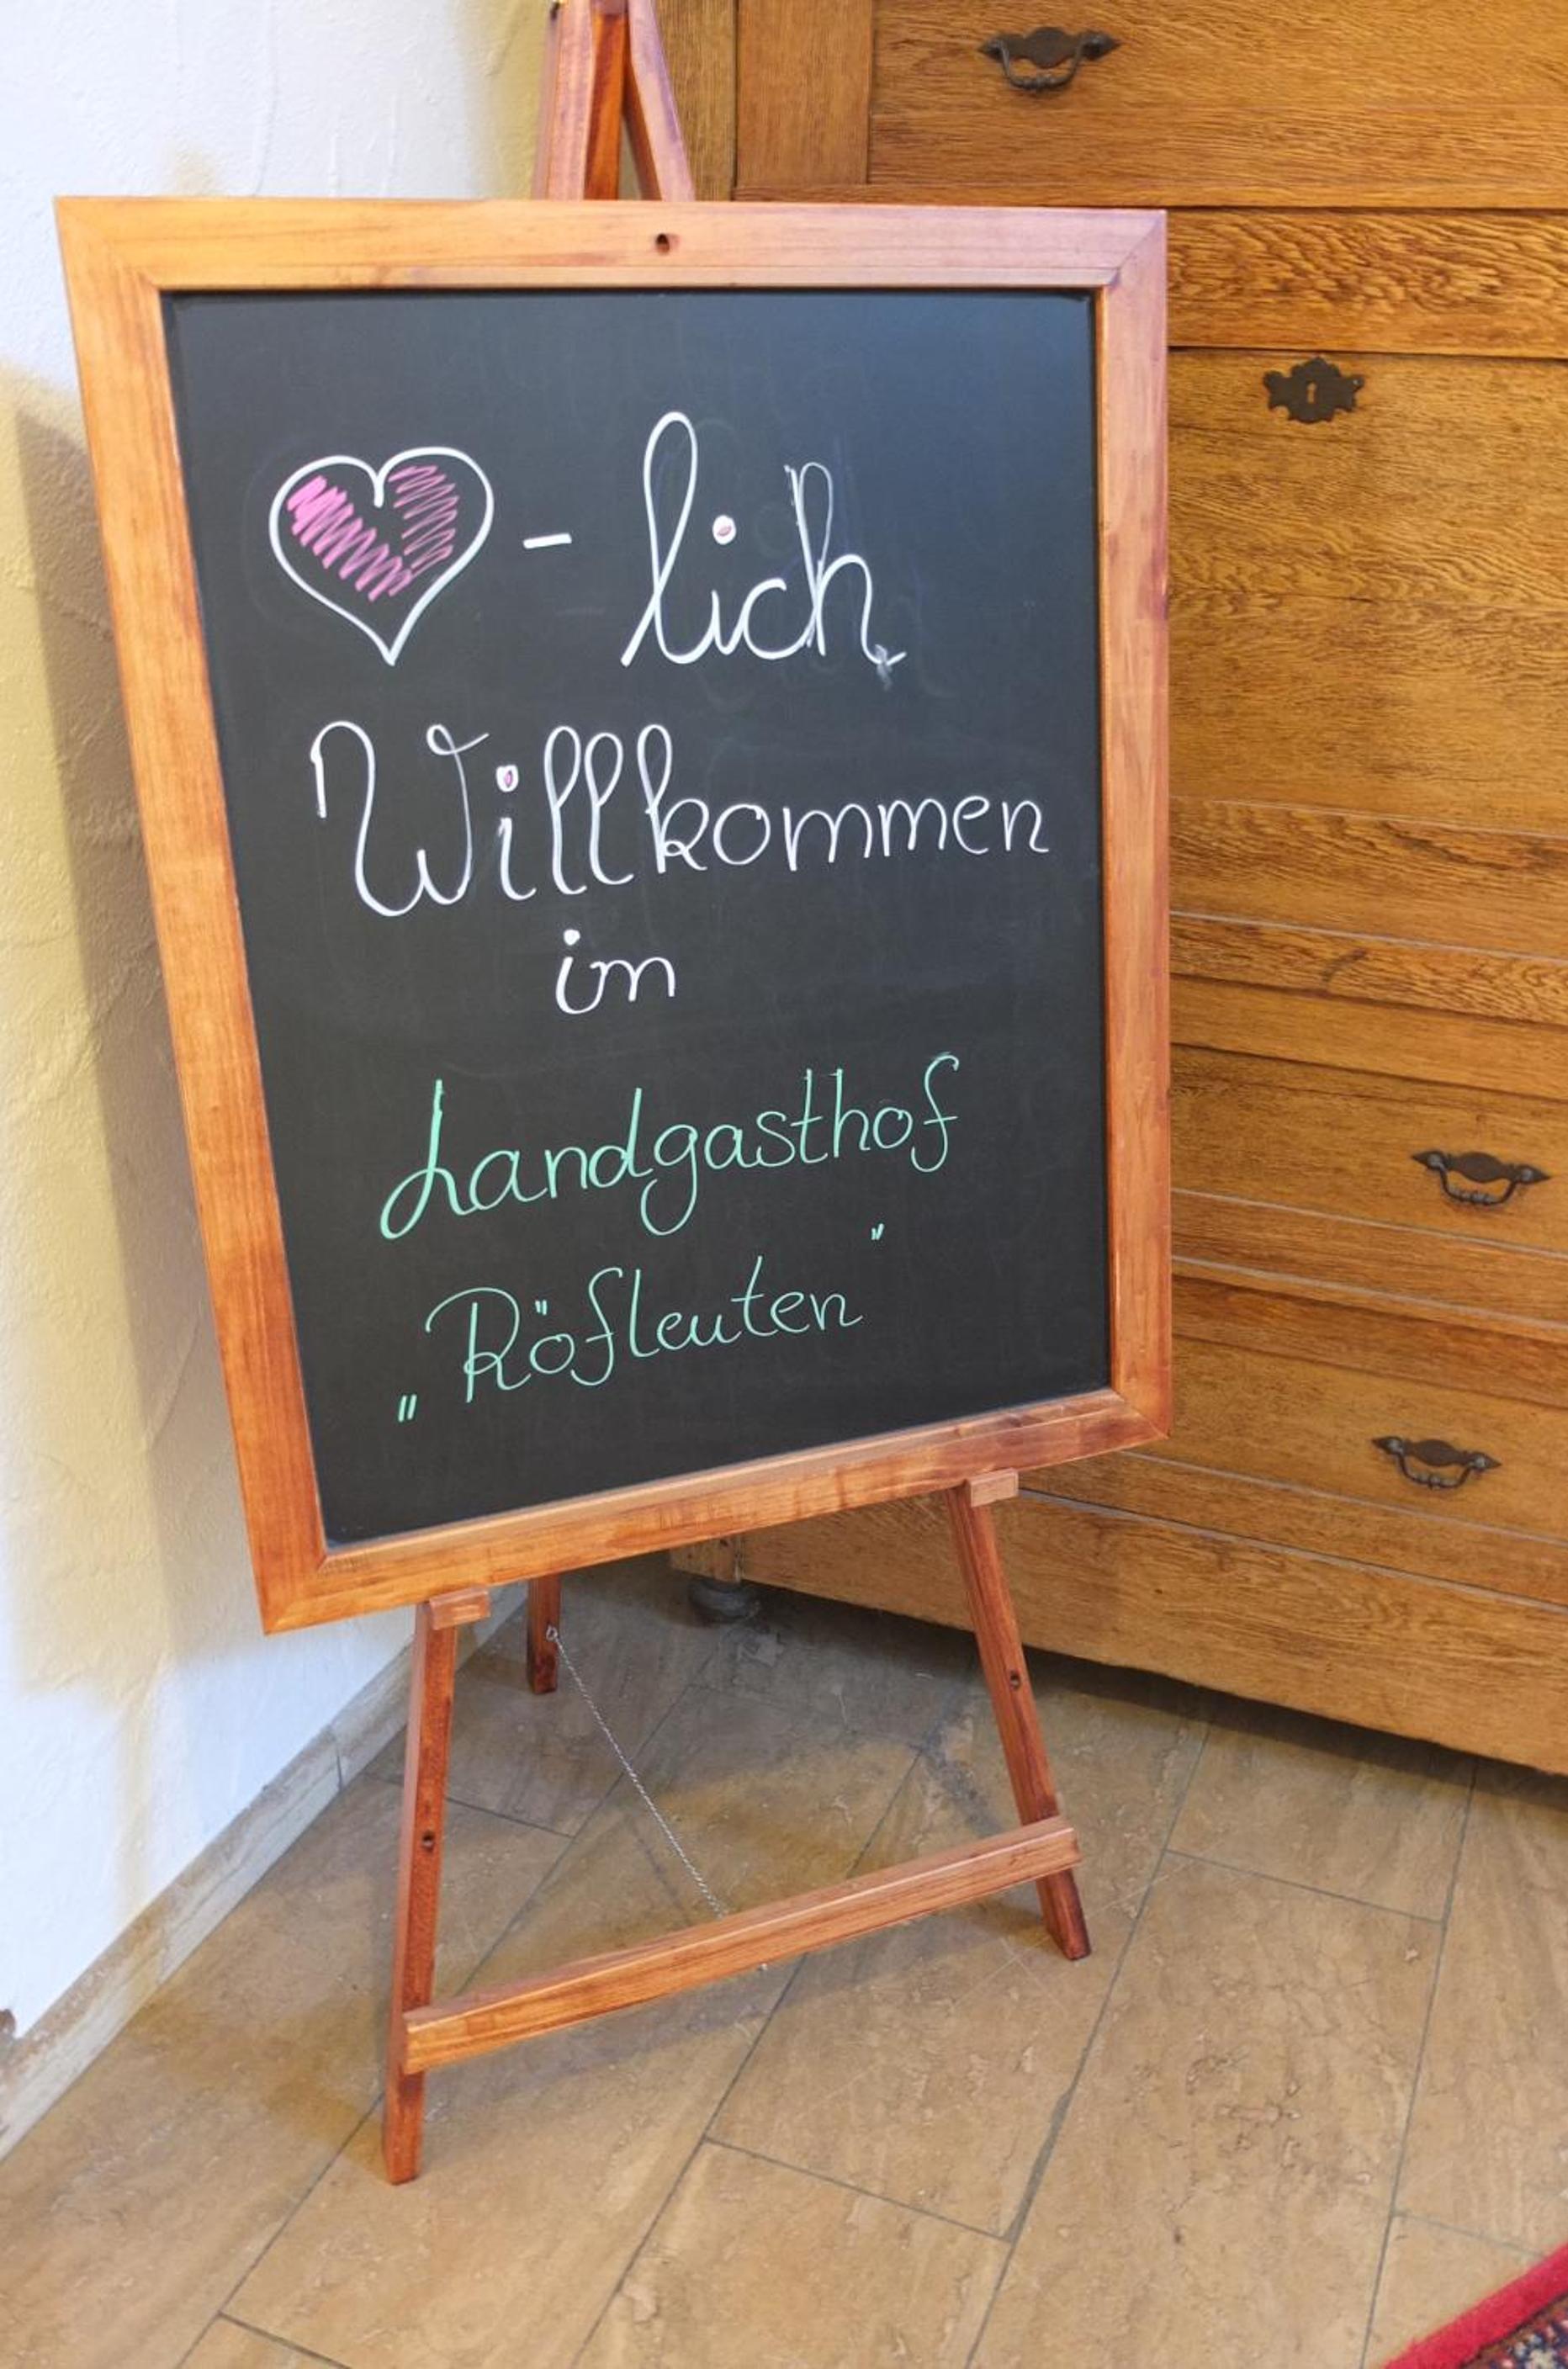 ♡-lich
Willkommen
im
Landgasthof
„Röfleuten"